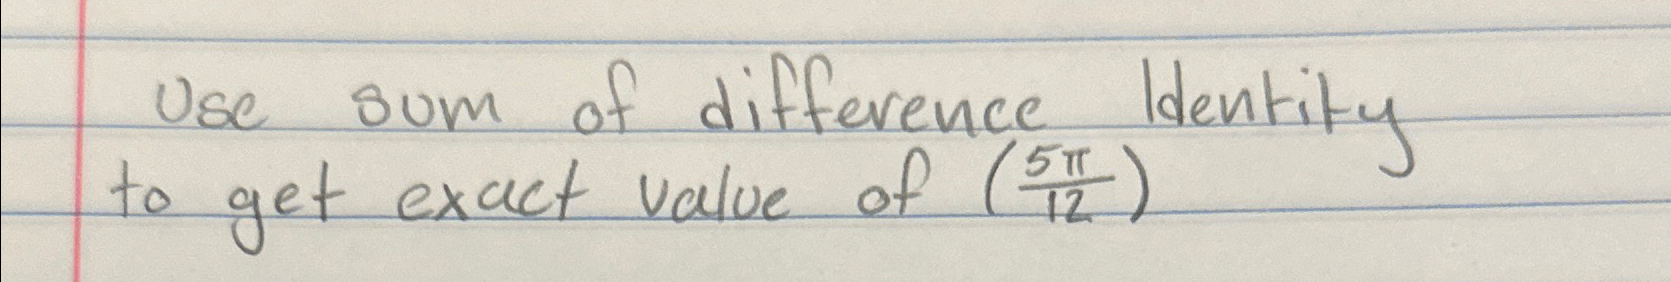 Use sum of difference Identity
to get exact value of (5π/12)